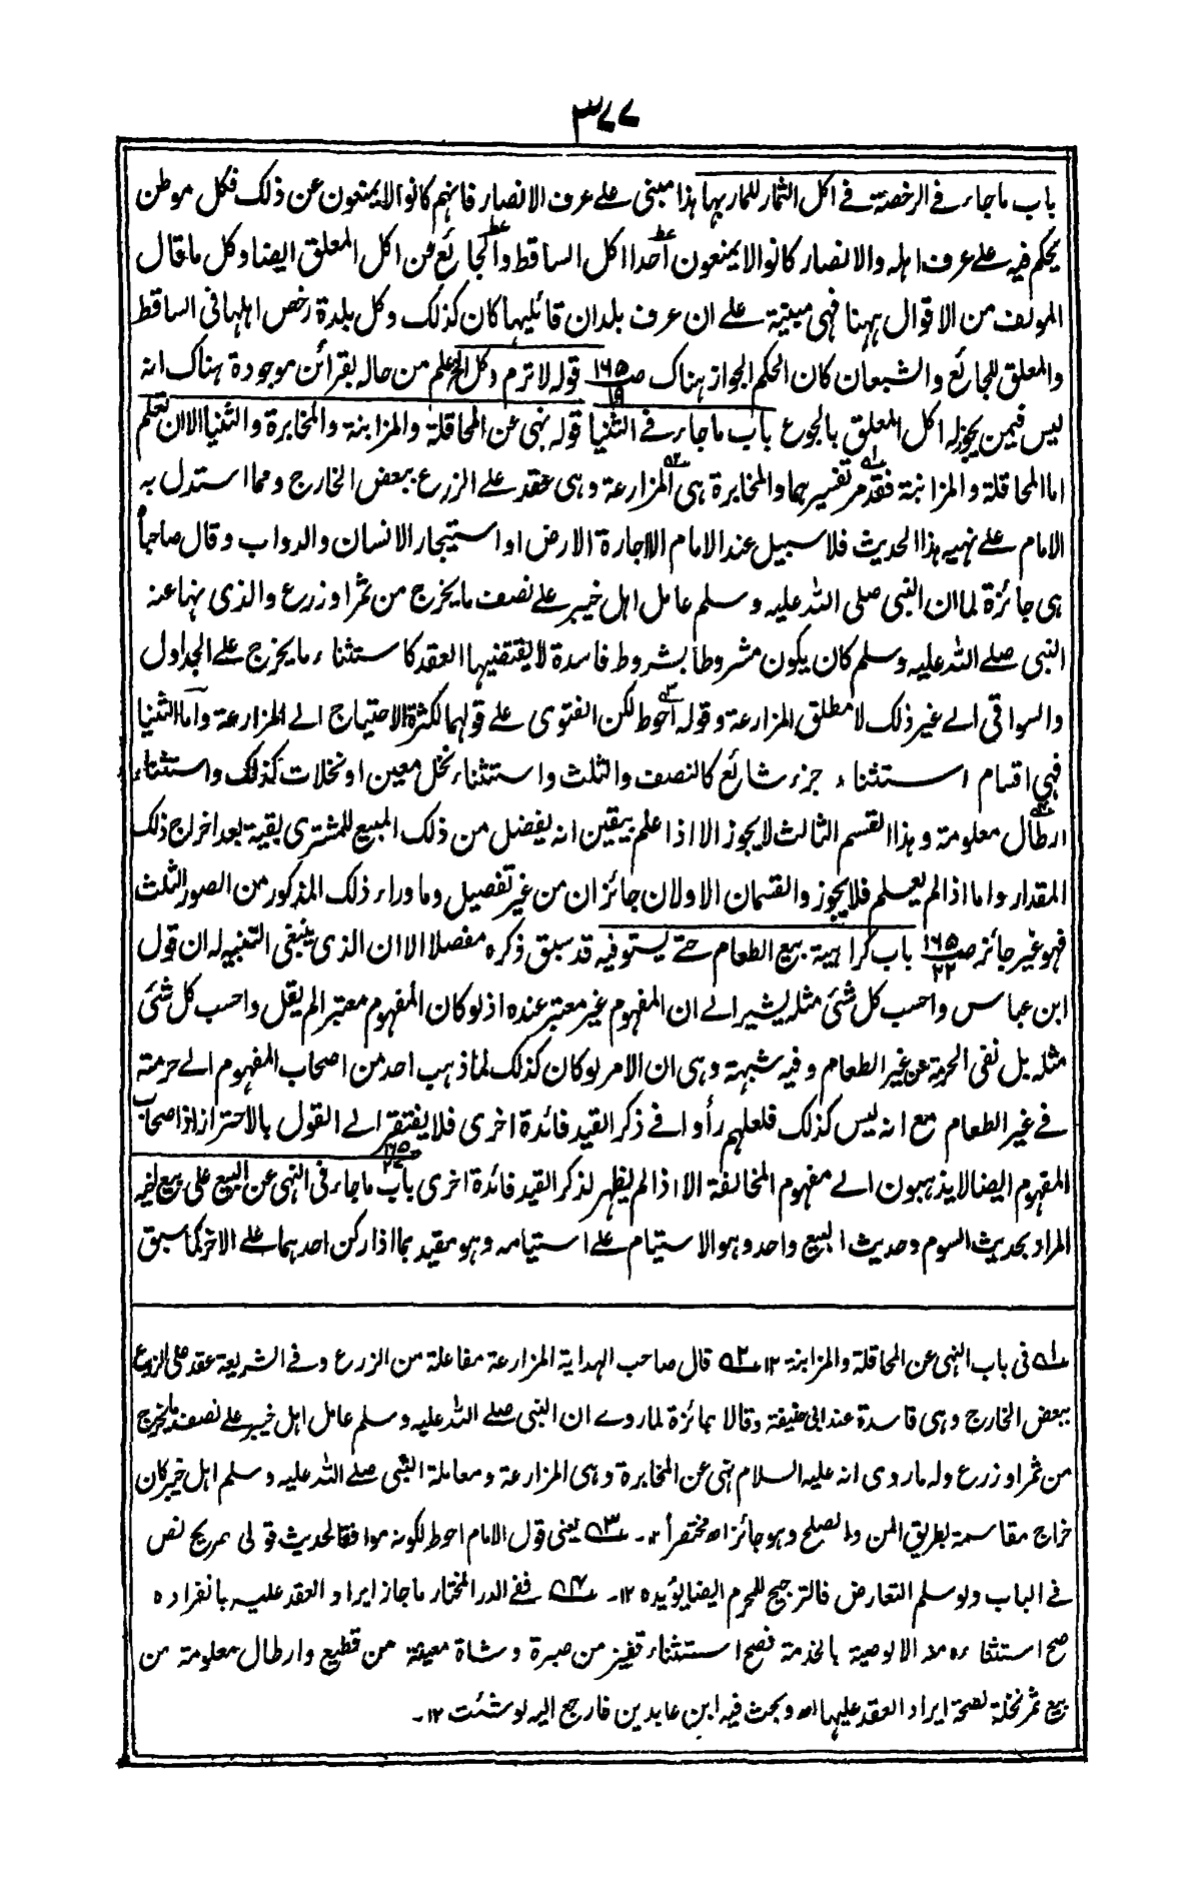 ٣٧٧
باب ما جاء في الرخصة في اكل الثمار للمار بها هذا مبنى على عرف الانصار فانهم كانوا لا يمنعون عن ذلك فكل موطن
يحكم فيه على عرف اهله والانصار كانوا لا يمنعون أحدا اكل الساقط والجائع من اكل المعلق ايضا وكل ما قال
المولف من الاقوال ههنا فهى مبنية على ان عرف بلدان قائليها كان كذلك وكل بلدة رخص اهلها في الساقط
والمعلق للجائع والشبعان كان الحكم الجواز هناك ص ١٦٥ / ١٩ قوله لا ترم وكل الخ علم من حاله بقرائن موجودة هناك انه
ليس فيمن يجوز له اكل المعلق بالجوع باب ما جاء في الثنيا قوله نهى عن المحاقلة والمزابنة والمخابرة والثنيا الا ان تعلم
اما المحاقلة والمزابنة فقد مر تفسيرهما والمخابرة هى المزارعة وهى عقد على الزرع ببعض الخارج ومما استدل به
الامام على نهيه هذا الحديث فلا سبيل عند الامام الا اجارة الارض او استيجار الانسان والدواب وقال صاحباه
هى جائزة لما ان النبى صلى الله عليه وسلم عامل اهل خيبر على نصف ما يخرج من ثمر او زرع والذى نها عنه
النبى صلى الله عليه وسلم كان يكون مشروطا بشروط فاسدة لا يقتضيها العقد كاستثناء ما يخرج على الجداول
والسواقى الى غير ذلك لا مطلق المزارعة وقوله أحوط لكن الفتوى على قولهما لكثرة الاحتياج الى المزارعة وأما الثنيا
فهى اقسام استثناء جزء شائع كالنصف والثلث واستثناء نخل معين او نخلات كذلك واستثناء
ارطال معلومة وهذا القسم الثالث لا يجوز الا اذا علم بيقين انه يفضل من ذلك المبيع للمشترى بقية بعد اخراج ذلك
المقدار واما اذا لم يعلم فلا يجوز والقسمان الاولان جائزان من غير تفصيل وما وراء ذلك المذكور من الصور الثلث
فهو غير جائز ص ١٦٥ / ٢٢ باب كراهية بيع الطعام حتى يستوفيه قد سبق ذكره مفصلا الا ان الذى ينبغى التنبيه له ان قول
ابن عباس واحسب كل شئ مثله يشير الى ان المفهوم غير معتبر عنده اذ لو كان المفهوم معتبرا لم يقل واحسب كل شئ
مثله بل نفى الحرمة عن غير الطعام وفيه شبهة وهى ان الامر لو كان كذلك لما ذهب احد من اصحاب المفهوم الى حرمته
في غير الطعام مع انه ليس كذلك فلعلهم رأوا في ذكر القيد فائدة اخرى فلا يفتقر الى القول بالاحتراز اذ اصحاب
المفهوم ايضا لا يذهبون الى مفهوم المخالفة الا اذا لم يظهر لذكر القيد فائدة اخرى ١٦٥ باب ما جاء في النهى عن البيع على بيع اخيه
المراد بحديث السوم وحديث البيع واحد وهو الاستيام على استيامه وهو مقيد بما اذا ركن احدهما على الاخر كما سبق
١ـه في باب النهى عن المحاقلة والمزابنة ١٢ ٢ـه قال صاحب الهداية المزارعة مفاعلة من الزرع وفي الشريعة عقد على الزرع
ببعض الخارج وهى فاسدة عند ابى حنيفة وقالا جائزة لما روے ان النبى صلى الله عليه وسلم عامل اهل خيبر على نصف ما يخرج
من ثمر او زرع وله ما روى انه عليه السلام نهى عن المخابرة وهى المزارعة ومعاملة النبى صلى الله عليه وسلم اهل خيبر كان
خراج مقاسمة بطريق المن والصلح وهو جائز اه مختصرا ١٢۔ ٣ـه يعنى قول الامام احوط لكونه موافقا لحديث قولى صريح نص
في الباب ولو سلم التعارض فالترجيح للمحرم ايضا يؤيده ١٢۔ ٤ـه ففى الدر المختار ما جاز ايراد العقد عليه بانفراده
صح استثناءه منه الا الوصية بالخدمة فصح استثناء قفيز من صبرة وشاة معينة من قطيع وارطال معلومة من
بيع ثمر نخلة لصحة ايراد العقد عليها اه وبحث فيه ابن عابدين فارجع اليه لو شئت ١٢۔